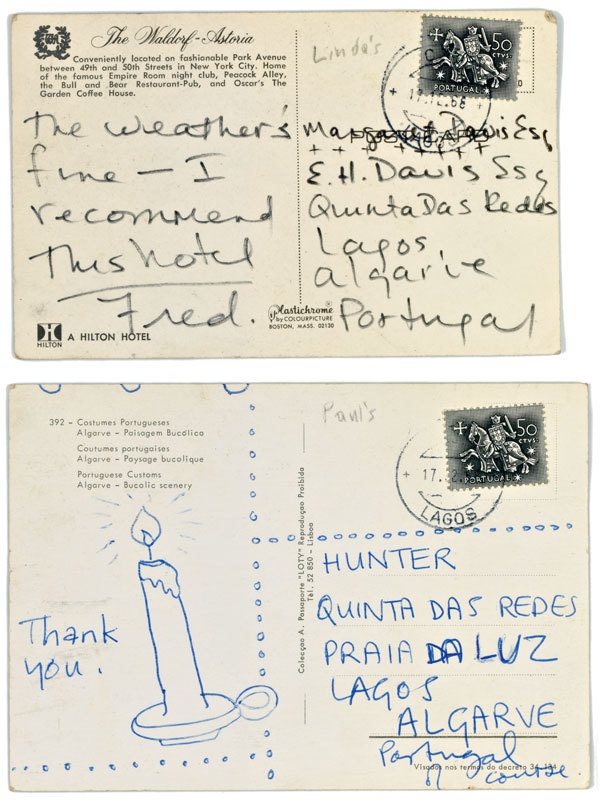 The Waldorf-Astoria
Conveniently located on fashionable Park Avenue
between 49th and 50th Streets in New York City. Home
of the famous Empire Room night club, Peacock Alley,
the Bull and Bear Restaurant-Pub, and Oscar's The
Garden Coffee House.
The weather's
fine – I
recommend
This hotel
Fred.
HILTON
A HILTON HOTEL
Plastichrome®
by COLOURPICTURE
BOSTON, MASS. 02130
Linda's
50
CTVS.
PORTUGAL
LAGOS
Margaret Davis Esq
E.H. Davis Esq
Quinta Das Redes
Lagos
algarve
Portugal
392 - Costumes Portugueses
Algarve - Paisagem Bucólica
Coutumes portugaises
Algarve - Paysage bucolique
Portuguese Customs
Algarve - Bucolic scenery
Thank
you.
Colecção A. Passaporte "LOTY" Reprodução Proibida
Tel. 52 850 - Lisboa
Paul's
50
CTVS.
PORTUGAL
17.
LAGOS
HUNTER
QUINTA DAS REDES
PRAIA DA LUZ
LAGOS
ALGARVE
Portugal
of course.
Visados nos termos do decreto 34 134